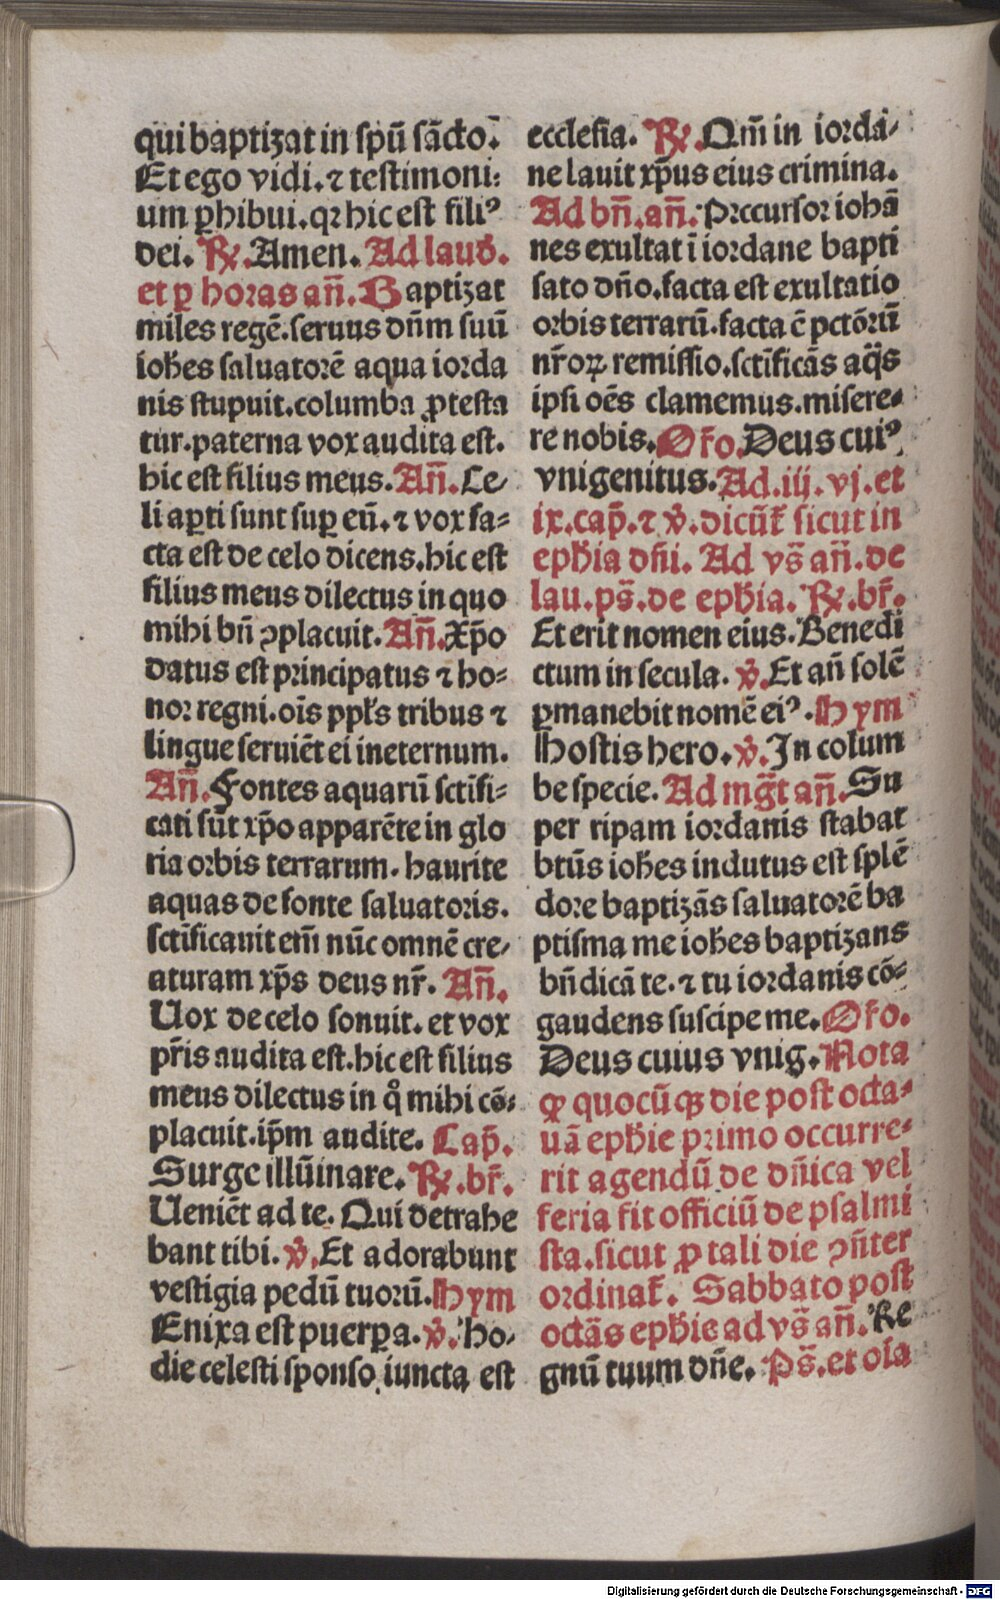 qui baptizat in spū sācto.
Et ego vidi. ⁊ testimoni:
um ꝑhibui. qꝛ hic est filiꝰ
dei. ℟. Amen. Ad laud.
et ꝑ horas añ. Baptizat
miles regē. seruus dñm suū
iohēs saluatorē aqua iorda
nis stupuit. columba ꝓtesta
tur. paterna vox audita est.
hic est filius meus. Añ. Ce-
li aꝑti sunt suꝑ eū. ⁊ vox fa=
cta est de celo dicens. hic est
filius meus dilectus in quo
mihi bñ ꝯplacuit. Añ. Xp̄o
datus est principatus ⁊ ho=
nor regni. oīs ppl's tribus ⁊
lingue seruiēt ei ineternum.
Añ. Fontes aquarū sctīfi=
cati sūt xp̄o apparēte in glo
ria orbis terrarum. haurite
aquas de fonte saluatoris.
sctīficauit em̄ nūc omnē cre-
aturam xp̄s deus nr̄. Añ.
Uox de celo sonuit. et vox
pr̄is audita est. hic est filius
meus dilectus in q̊ mihi cō:
placuit. ip̄m audite. Cap̄.
Surge illūinare. ℟. br̄.
Ueniēt ad te. Qui detrahe
bant tibi. ℣. Et adorabunt
vestigia pedū tuorū. Hym
Enixa est puerꝑa. ℣. Ho-
die celesti sponso iuncta est
ecclesia. ℟. Qm̄ in iorda-
ne lauit xp̄us eius crimina.
Ad bñ. añ. Precursor iohā
nes exultat ī iordane bapti
sato dño. facta est exultatio
orbis terrarū. facta ē pctōrū
nr̄oꝝ remissio. sctīficās aq̄s
ipsi oēs clamemus. misere=
re nobis. Or̄o. Deus cuiꝰ
vnigenitus. Ad. iij. vj. et
ix. cap̄. ⁊ ℣. dicūt̄ sicut in
eph̄ia dñi. Ad vs̄ añ. de
lau. ps̄. de eph̄ia. ℟. br̄.
Et erit nomen eius. Benedi
ctum in secula. ℣. Et añ solē
ꝑmanebit nomē eiꝰ. Hym
Hostis hero. ℣. In colum
be specie. Ad mḡt añ. Su
per ripam iordanis stabat
btūs iohēs indutus est splē
dore baptizās saluatorē ba
ptisma me iohēs baptizans
bñdicā te. ⁊ tu iordanis cō=
gaudens suscipe me. Or̄o.
Deus cuius vnig. Nota
ꝙ quocūqꝫ die post octa=
uā eph̄ie primo occurre=
rit agendū de dñica vel
feria fit officiū de psalmi
sta. sicut ꝓ tali die ꝯñter
ordinat̄. Sabbato post
octās eph̄ie ad vs̄ añ. Re
gnū tuum dñe. Ps̄. et oīa
Digitalisierung gefördert durch die Deutsche Forschungsgemeinschaft - DFG